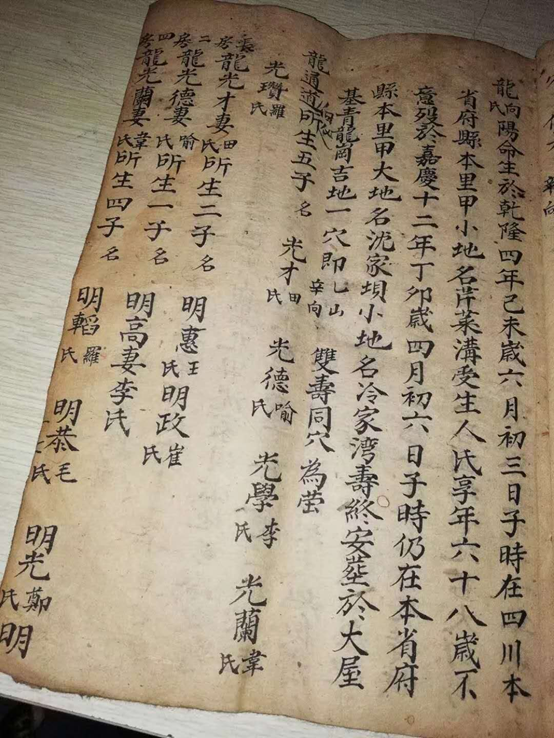 龍向氏陽命生於乾隆四年己未歲六月初三日子時在四川本
省府縣本里甲小地名芹菜溝受生人氏享年六十八歲不
意歿於嘉慶十二年丁卯歲四月初六日子時仍在本省府
縣本里甲大地名沈家垻小地名冷家湾壽終安塟於大屋
基青龍崗吉地一穴即乙山辛向 雙壽同穴為茔
龍通道所生五子名 光才田氏 光德喻氏 光學李氏 光蘭韋氏
光瓚羅氏
房龍光才妻田氏所生二子名 明惠王氏 明政崔氏
二房龍光德妻喻氏所生一子名 明高妻李氏
四房龍光蘭妻韋氏所生四子名 明韜羅氏 明恭毛氏 明光鄭氏 明